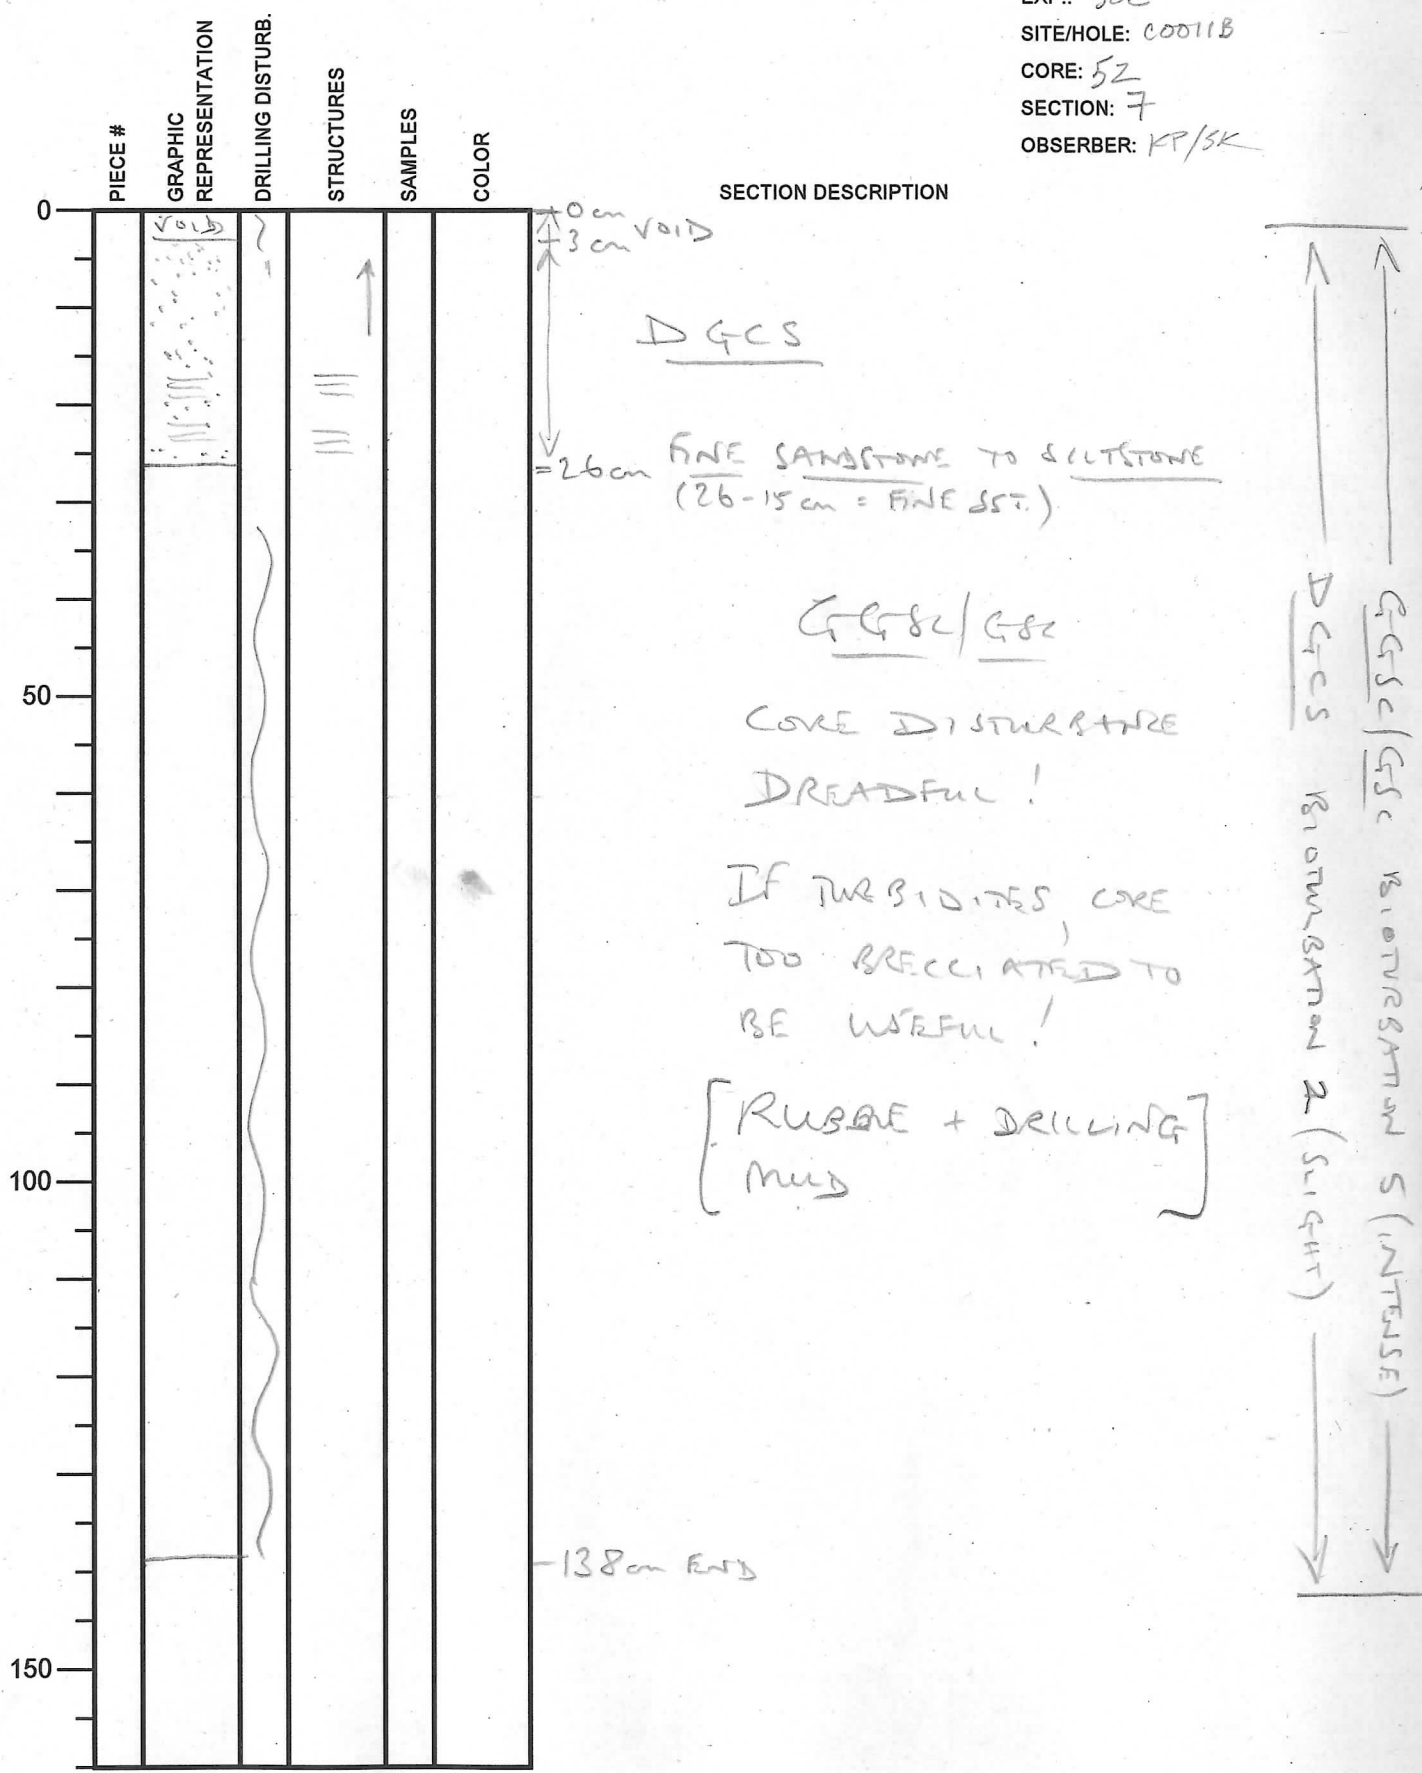 SITE/HOLE: C0011B
CORE: 52
SECTION: 7
OBSERBER: KP/SK
PIECE #
GRAPHIC
REPRESENTATION
DRILLING DISTURB.
STRUCTURES
SAMPLES
COLOR
SECTION DESCRIPTION
0
50
100
150
VOID
0 cm
3 cm VOID
DGCS
=26cm FINE SANDSTONE TO SILTSTONE
(26-15 cm = FINE SST.)
GGSC/GSC
CORE DISTURBANCE
DREADFUL!
IF TURBIDITES, CORE
TOO BRECCIATED TO
BE USEFUL!
[RUBBLE + DRILLING
MUD]
-138cm END
DGCS BIOTURBATION 2 (SLIGHT)
GGSC/GSC BIOTURBATION 5 (INTENSE)